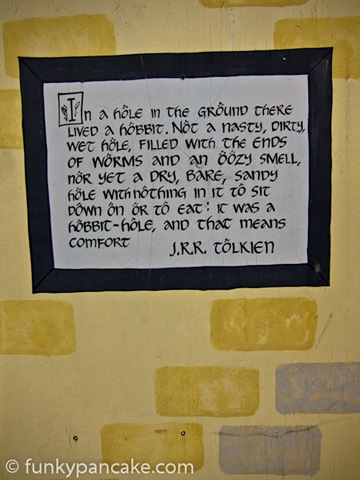 In a höle in the gröund there
lived a höbbit. Nöt a nasty, dirty,
wet höle, filled with the ends
of wörms and an öözy smell,
nör yet a dry, bare, sandy
höle with nöthing in it tö sit
döwn ön ör tö eat: it was a
höbbit-höle, and that means
cömfört
J.R.R. TÖLKIEN
© funkypancake.com